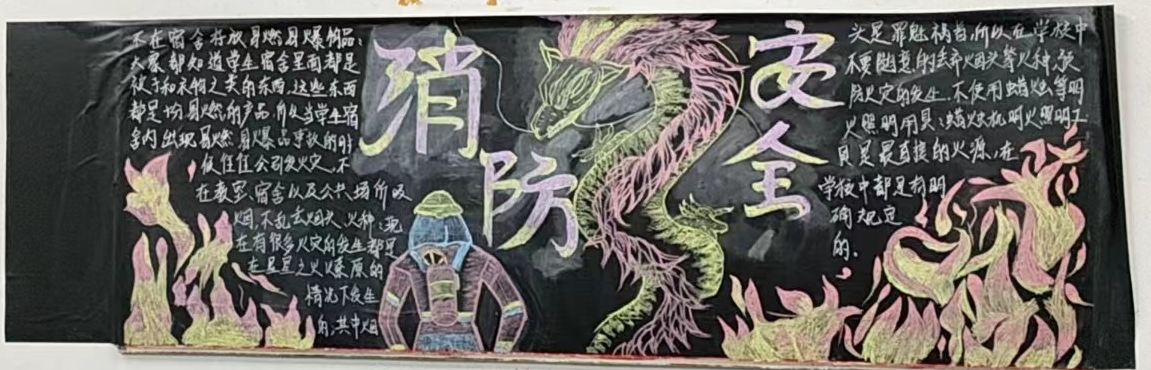 不在宿舍存放易燃易爆物品：
大家都知道学生宿舍里面都是
被子和衣物之类的东西,这些东西
都是一份易燃的产品,所以当学生宿
舍内出现易燃易爆品事故的时
候往往会引发火灾。不
在教室、宿舍以及公共场所吸
烟,不乱丢烟头、火种：现
在有很多火灾的发生都是
在星星之火燎原的
情况下发生
的,其中烟
消防
安全
头是罪魁祸首,所以在学校中
不要随意的丢弃烟头等火种,预
防火灾的发生.不使用蜡烛等明
火照明用具：蜡烛机明火照明工
具是最直接的火源,在
学校中都是有明
确规定
的.